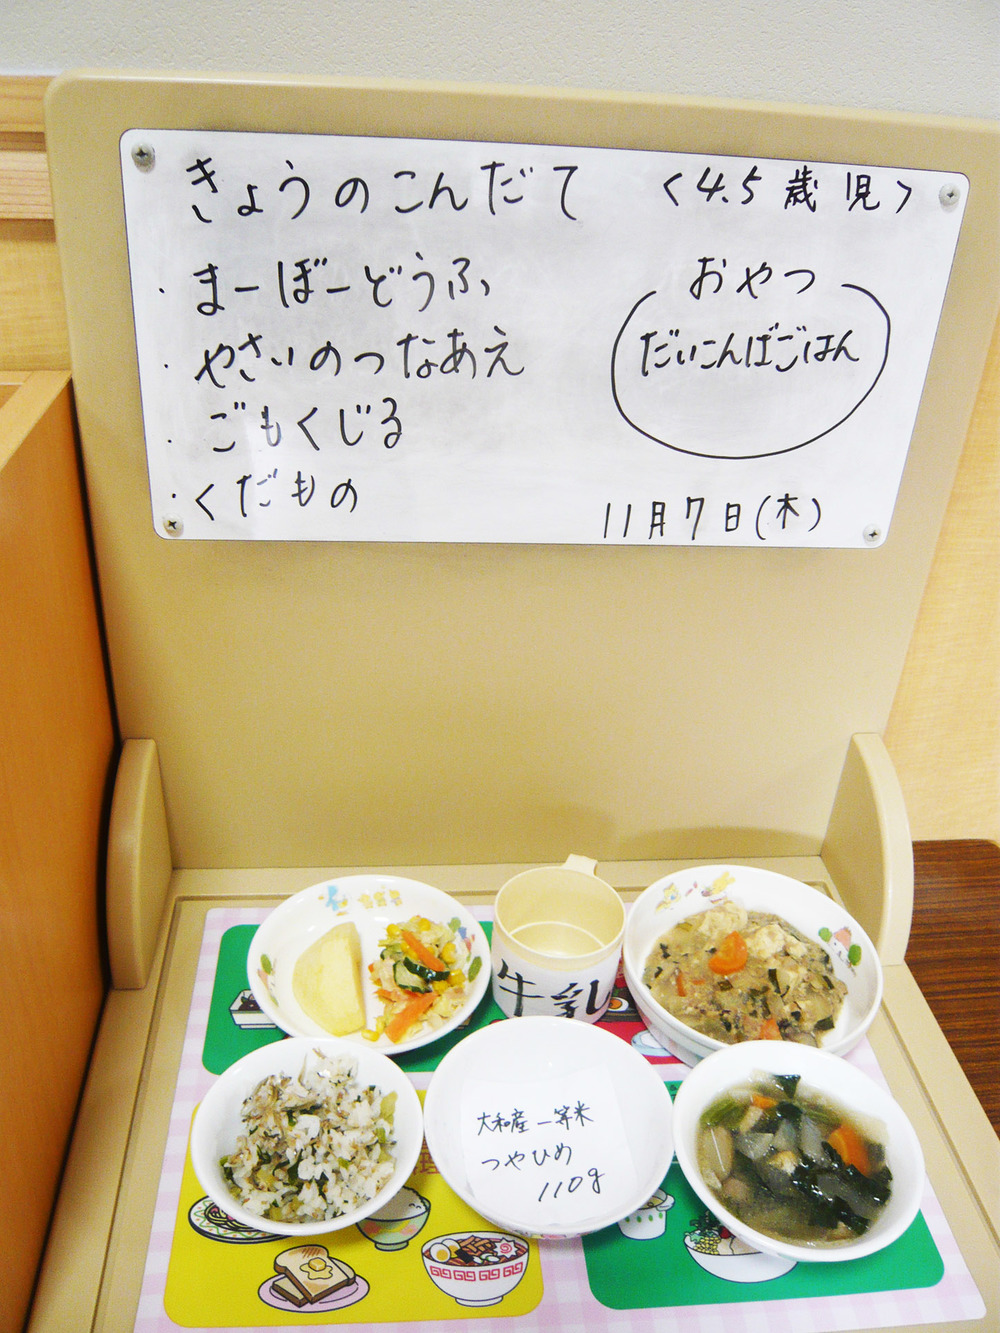 きょうのこんだて <4.5歳児>
・まーぼーどうふ
・やさいのつなあえ
・ごもくじる
・くだもの
おやつ
だいこんばごはん
11月7日(木)
牛乳
大和産一等米
つやひめ
110g